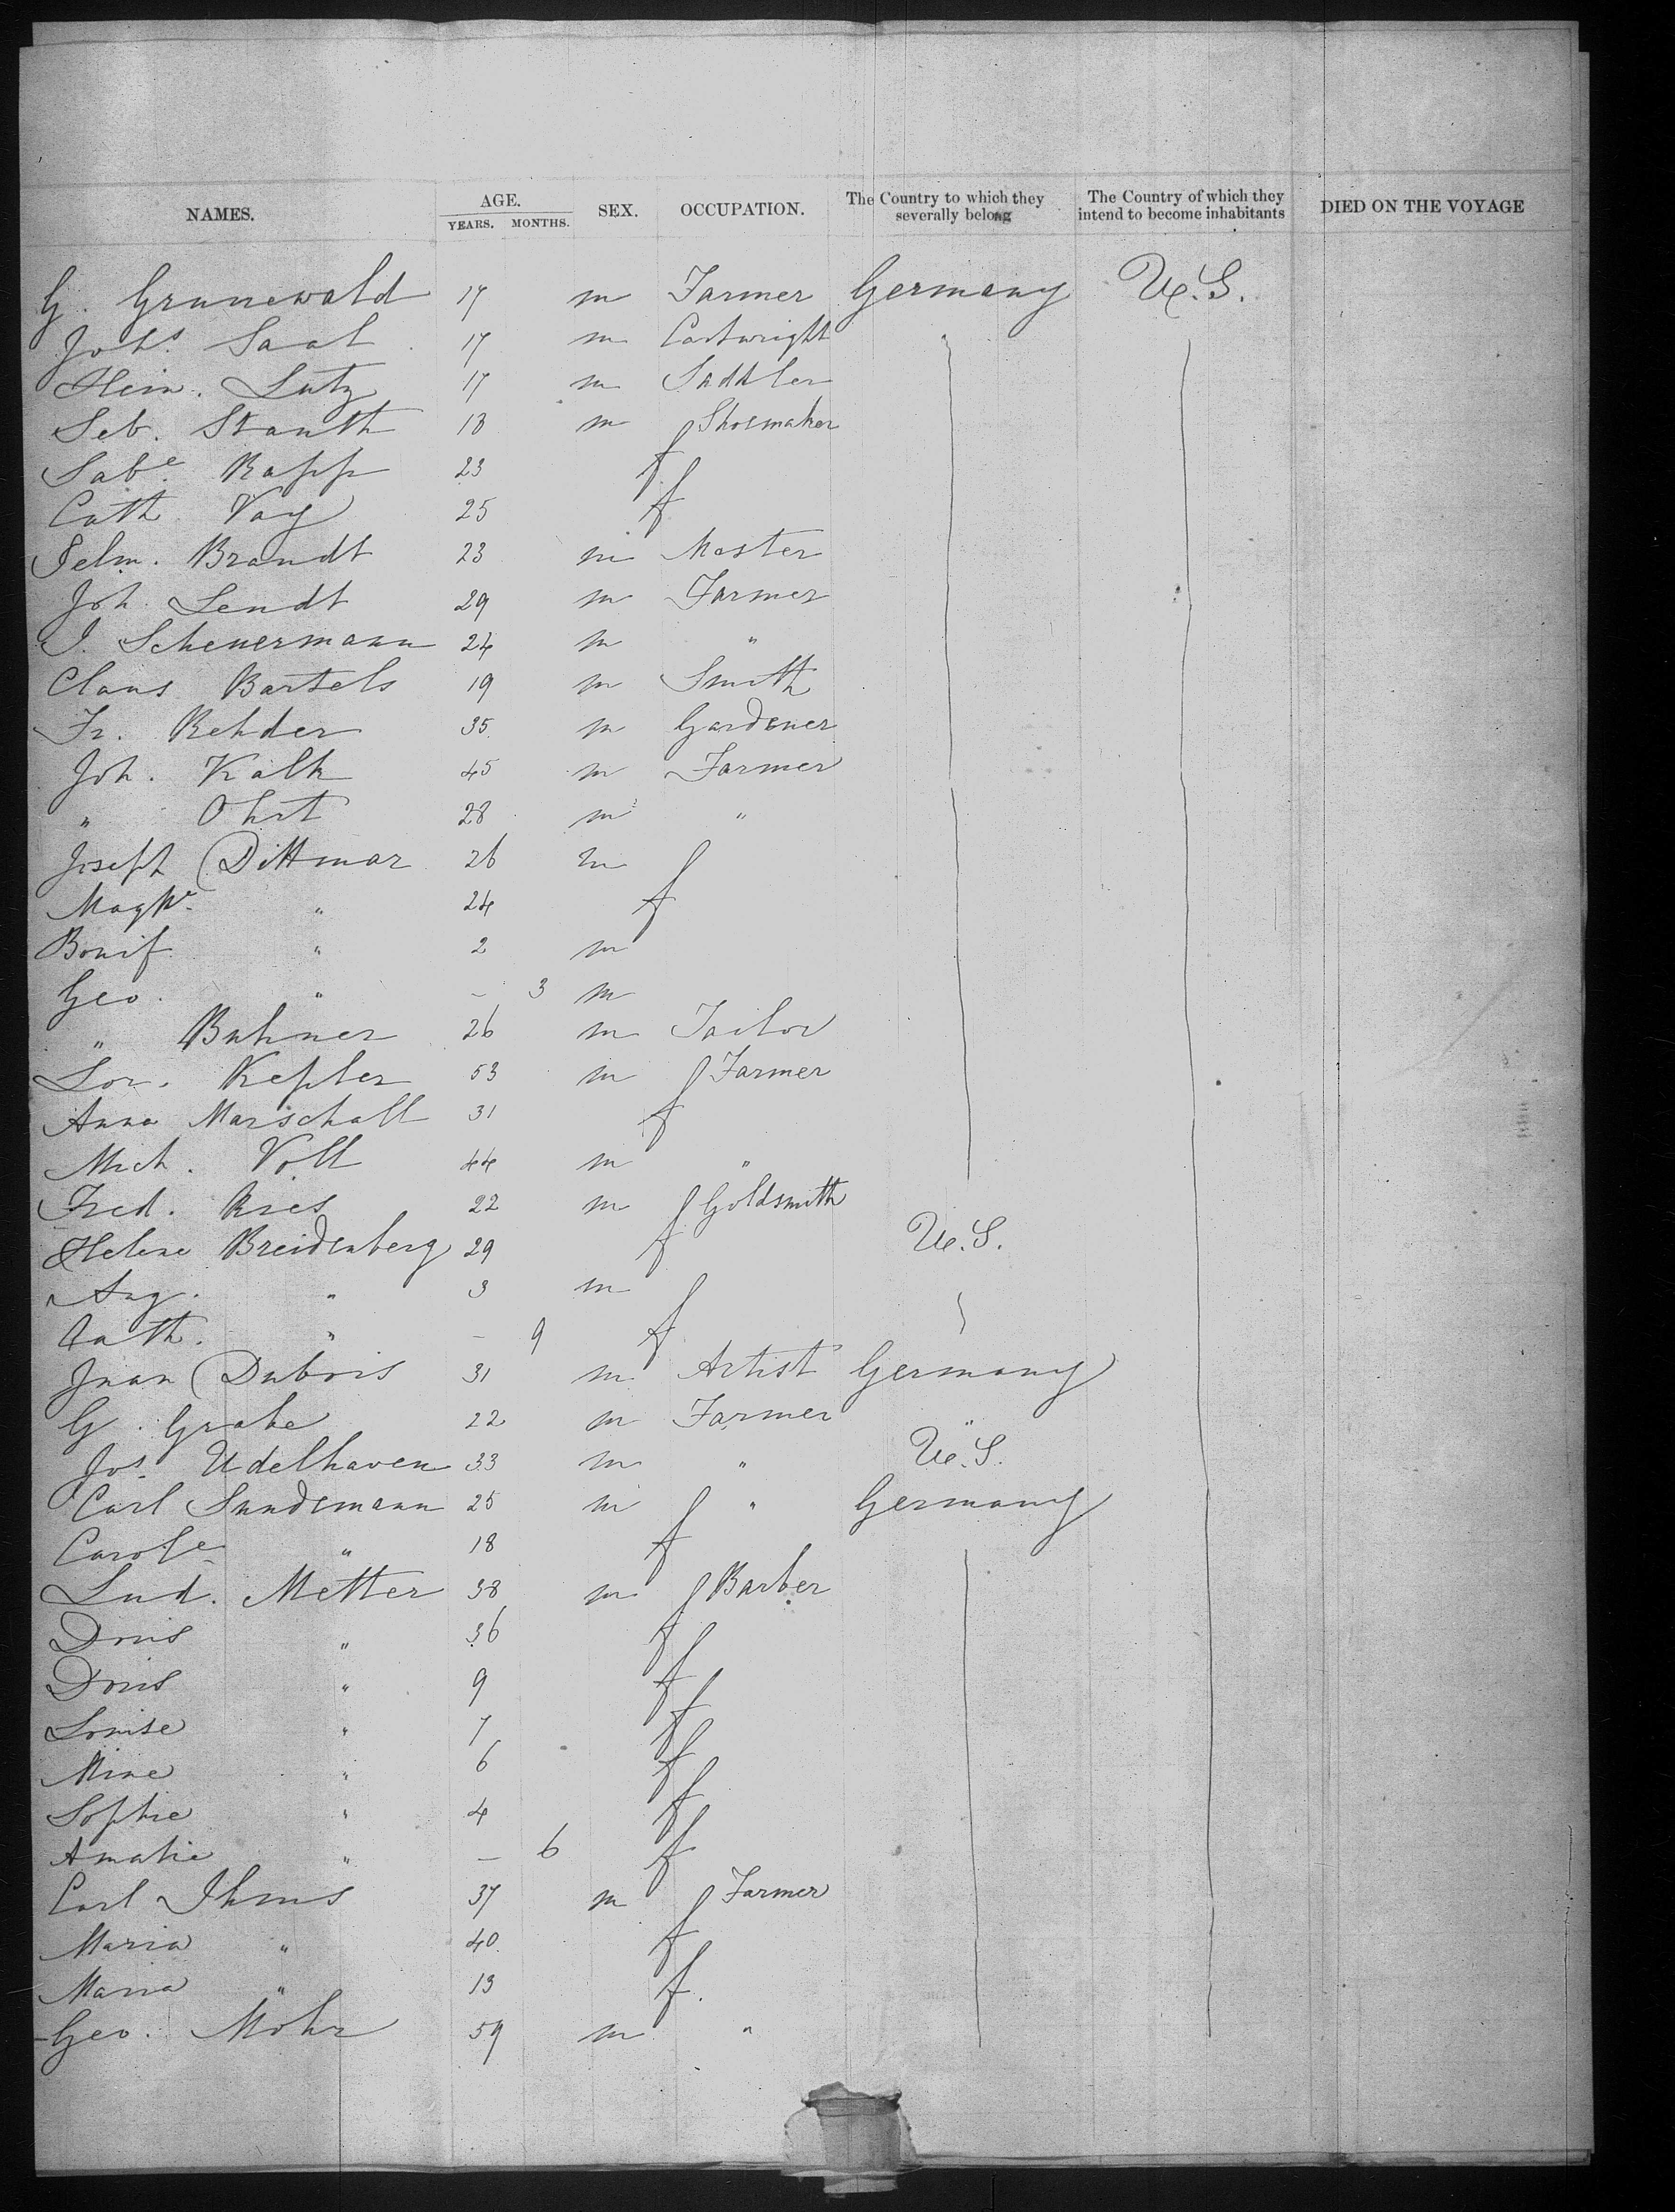 NAMES. AGE. YEARS. MONTHS. SEX. OCCUPATION. The Country to which they severally belong The Country of which they intend to become inhabitants DIED ON THE VOYAGE
G. Grunewald 17 m Farmer Germany U.S.
Johs. Saal 17 m Cartwright
Hein. Lutz 17 m Saddler
Seb. Stauth 18 m Shoemaker
Sabe. Rapp 23 f
Cath. Vay 25 f
Selm. Brandt 23 m Master
Joh. Lendt 29 m Farmer
J. Scheuermann 24 m "
Claus Bartels 19 m Smith
Fr. Rehder 35 m Gardener
Joh. Kalk 45 m Farmer
" Ohrt 28 m "
Joseph Dittmar 26 m
" 24 f
Bonif. " 2 m
Geo. " – 3 m
" Buhner 26 m Tailor
Lor. Kepler 53 m Farmer
Anna Marschall 31 f
Mich. Voll 44 m "
Fred. Ries 22 m Goldsmith
Helene Breidenberg 29 f U.S.
Aug. " 3 m
Cath. " – 9 f
Juan Dubois 31 m Artist Germany
G. Grabe 22 m Farmer "
Jos. Udelhaven 33 m " U.S.
Carl Sundemann 25 m " Germany
Carole " 18 f
Lud. Metter 38 m Barber
Doris " 36 f
Doris " 9 f
Louise " 7 f
Mine " 6 f
Sophie " 4 f
Amalie " – 6 f
Carl Ihms 37 m Farmer
Maria " 40 f
Maria " 13 f.
Geo. Mohr 59 m "